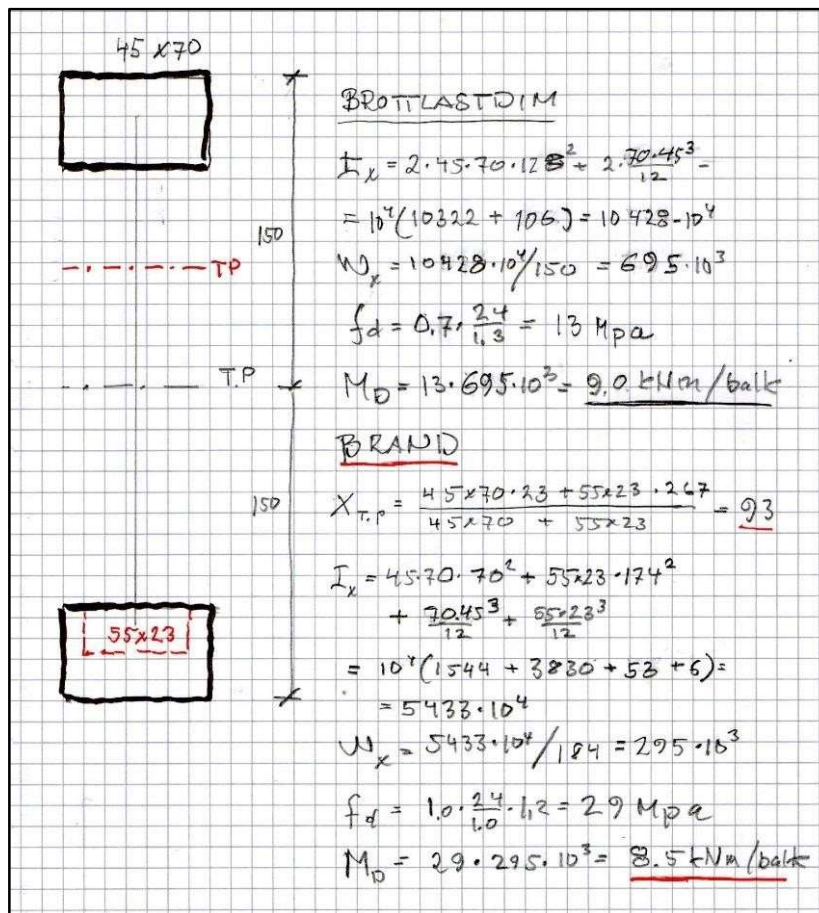 45 x70
BROTTLASTDIM
I_x = 2·45·70·128² + 2·70·45³/12 =
= 10⁴(10322 + 106) = 10428·10⁴
150
W_x = 10428·10⁴/150 = 695·10³
TP
f_d = 0,7·24/1,3 = 13 Mpa
T.P
M_D = 13·695·10³ = 9,0 kNm/balk
BRAND
X_T.P = (45x70·23 + 55x23·267)/(45x70 + 55x23) = 93
150
I_x = 45·70·70² + 55x23·174²
+ 70·45³/12 + 55·23³/12
55x23
= 10⁴(1544 + 3830 + 53 + 6) =
= 5433·10⁴
W_x = 5433·10⁴/184 = 295·10³
f_d = 1,0·24/1,0·1,2 = 29 Mpa
M_D = 29·295·10³ = 8.5 kNm/balk